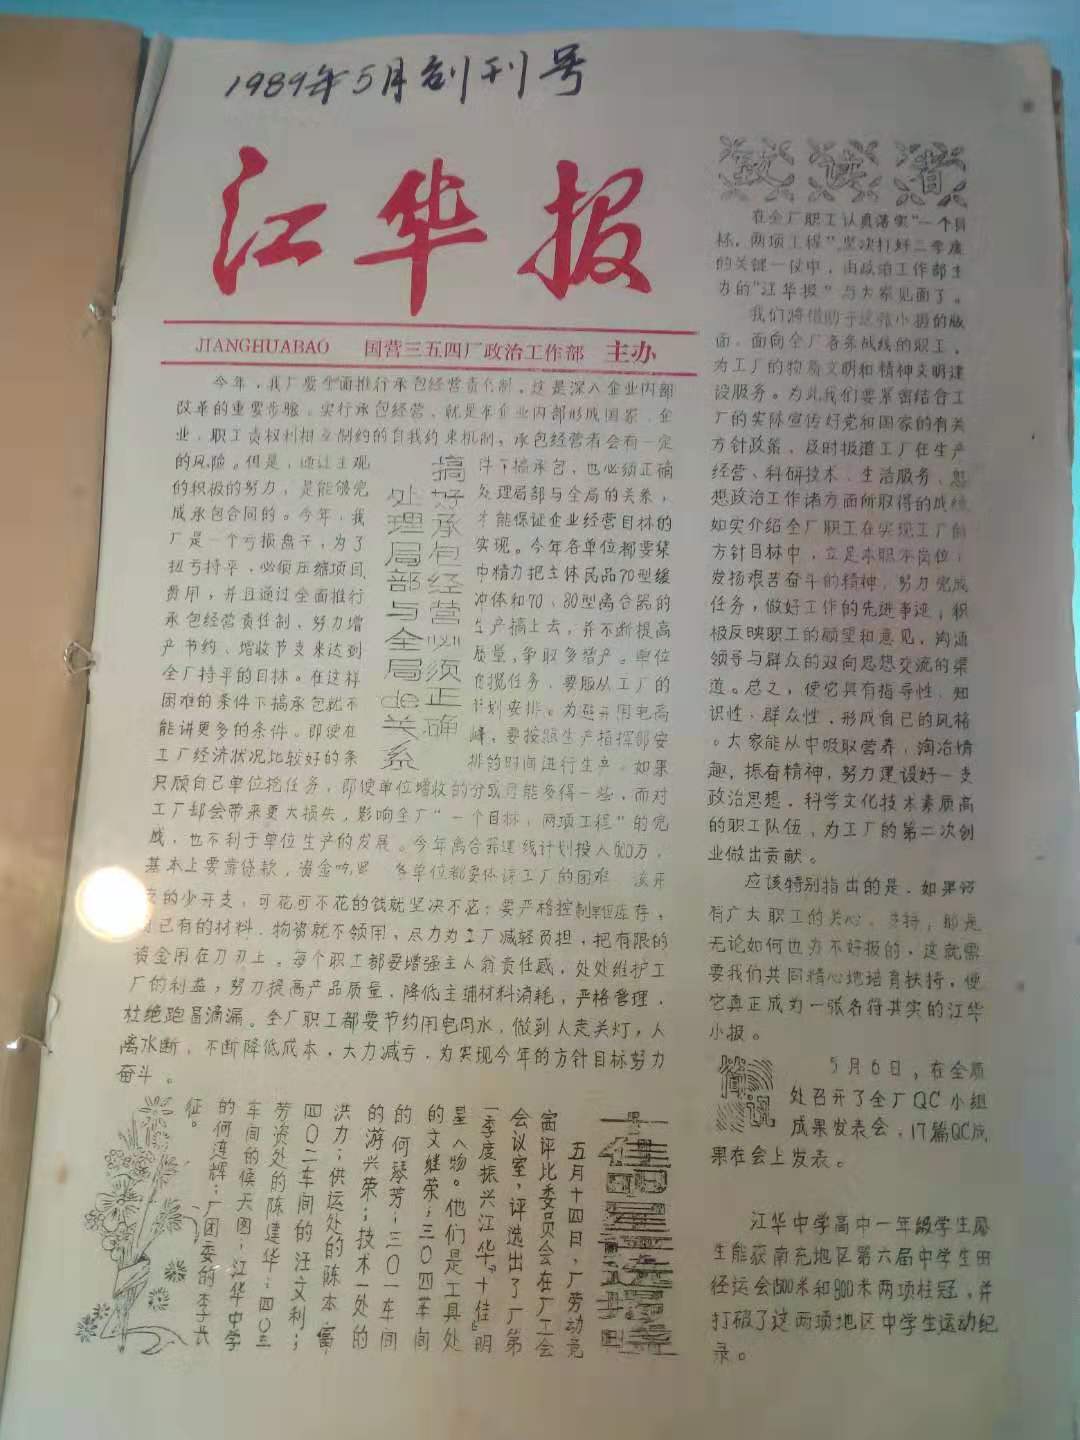 1989年5月创刊号
江华报
JIANGHUABAO 国营三五四厂政治工作部 主办
今年，我厂要全面推行承包经营责任制，这是深入企业内部
改革的重要步骤。实行承包经营，就是在企业内部形成国家、企
业、职工责权利相互制约的自我约束机制，承包经营者会有一定
的风险。但是，通过主观
的积极的努力，是能够完
成承包合同的。今年，我
厂是一个亏损盘子，为了
扭亏持平，必须压缩项目
费用，并且通过全面推行
承包经营责任制、努力增
产节约、增收节支来达到
全厂持平的目标。在这样
困难的条件下搞承包就不
能讲更多的条件。即使在
工厂经济状况比较好的条
搞好承包经营必须正确
处理局部与全局de关系
件下搞承包，也必须正确
处理局部与全局的关系，
才能保证企业经营目标的
实现。今年各单位都要集
中精力把主体民品70型缓
冲体和70、80型离合器的
生产搞上去，并不断提高
质量，争取多增产。单位
任务，要服从工厂的
计划安排。为避开用电高
峰，要按照生产指挥部安
排的时间进行生产，如果
只顾自己单位抢任务，即使单位增收的分成可能多得一些，而对
工厂却会带来更大损失，影响全厂“一个目标，两项工程”的完
成，也不利于单位生产的发展。今年离合器建线计划投入600万，
基本上要靠贷款，资金吃紧 各单位都要体谅工厂的困难 该开
支的少开支，可花可不花的钱就坚决不花；要严格控制单位库存，
已有的材料、物资就不领用，尽力为工厂减轻负担，把有限的
资金用在刀刃上。每个职工都要增强主人翁责任感，处处维护工
厂的利益；努力提高产品质量，降低主辅材料消耗，严格管理，
杜绝跑冒滴漏。全厂职工都要节约用电用水，做到人走关灯，人
离水断，不断降低成本，大力减亏，为实现今年的方针目标努力
奋斗。
致读者
在全厂职工认真落实“一个目
标，两项工程”坚决打好二季度
的关键一仗中，由政治工作部主
办的“江华报”与大家见面了。
我们将借助于这张小报的版
面，面向全厂各条战线的职工，
为工厂的物质文明和精神文明建
设服务。为此我们要紧密结合工
厂的实际宣传好党和国家的有关
方针政策，及时报道工厂在生产
经营、科研技术、生活服务、思
想政治工作诸方面所取得的成绩
如实介绍全厂职工在实现工厂的
方针目标中，立足本职岗位，
发扬艰苦奋斗的精神，努力完成
任务，做好工作的先进事迹；积
极反映职工的愿望和意见，沟通
领导与群众的双向思想交流的渠
道。总之，使它具有指导性、知
识性、群众性，形成自己的风格
。大家能从中吸取营养，淘冶情
趣，振奋精神，努力建设好一支
政治思想、科学文化技术素质高
的职工队伍，为工厂的第二次创
业做出贡献。
应该特别指出的是，如果没
有广大职工的关心、支持，那是
无论如何也办不好报的，这就需
要我们共同精心地培育扶持，使
它真正成为一张名符其实的江华
小报。
简讯
5月6日，在全质
处召开了全厂QC小组
成果发表会，17篇QC成
果在会上发表。
江华中学高中一年级学生廖
生能获南充地区第六届中学生田
径运会1500米和800米两项桂冠，并
打破了这两项地区中学生运动纪
录。
十佳明星选揭
五月十四日，厂劳动竞
赛评比委员会在厂工会
会议室，评选出了厂第
一季度振兴江华“十佳”明
星人物。他们是工具处
的文继荣；三〇四车间
的何琴芳；三〇一车间
的游兴荣；技术一处的
洪力；供运处的陈本富
四〇二车间的汪文利；
劳资处的陈建华；四〇三
车间的候天图；江华中学
的何莲辉；厂团委的李长
征。